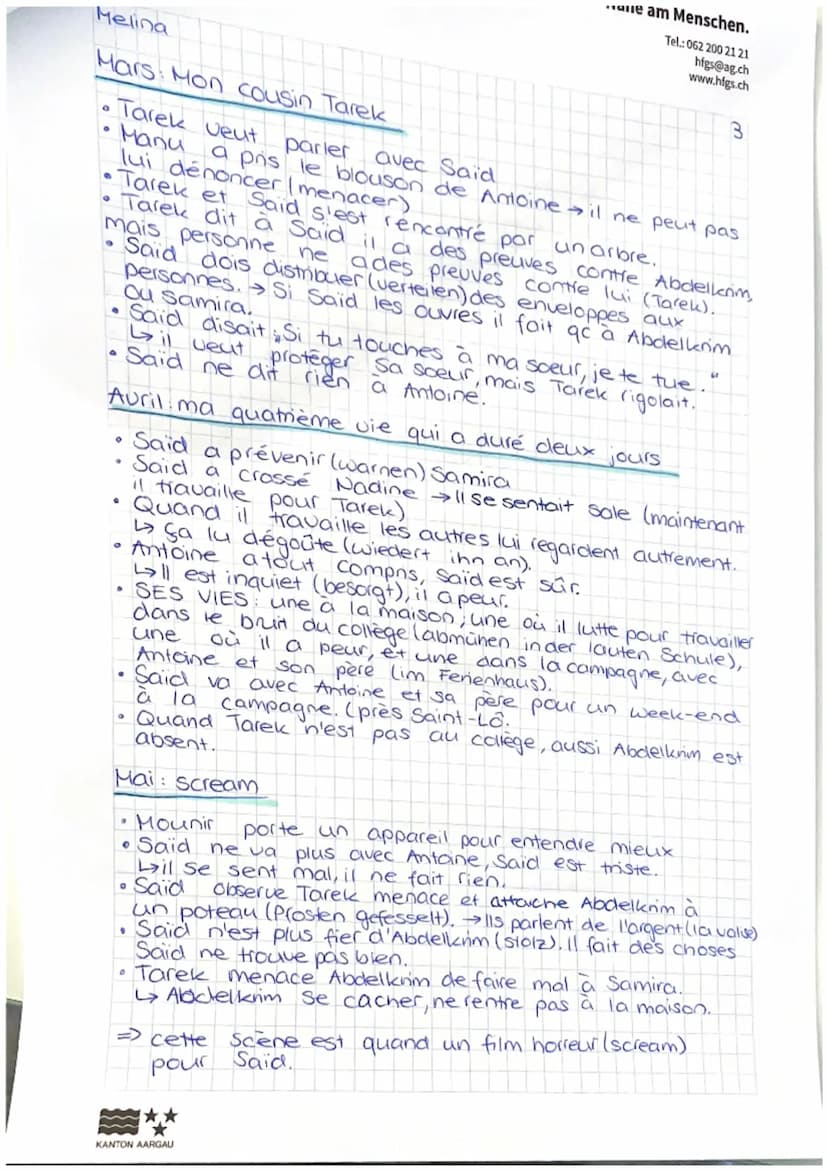 Melina
am Menschen.
Tel.: 062 200 21 21
hfgs@ag.ch
www.hfgs.ch
3
Mars: Mon cousin Tarek
• Tarek veut parler avec Said
• Manu a pris le blouson de Antoine → il ne peut pas
lui dénoncer (menacer)
• Tarek et Said s'est rencontré par un arbre.
• Tarek dit à Said il a des preuves contre Abdelkrim,
mais personne ne a des preuves contre lui (Tarek).
• Saïd dois distribuer (verteilen) des enveloppes aux
personnes. → Si Saïd les ouvres il fait qc à Abdelkrim
ou Samira.
• Said disait: „Si tu touches à ma soeur, je te tue."
↳ il veut protéger sa soeur, mais Tarek rigolait.
• Saïd ne dit rien à Antoine.
Avril: ma quatrième vie qui a duré deux jours
• Saïd a prévenir (warnen) Samira
• Saïd a crossé Nadine → Il se sentait sale (maintenant
il travaille pour Tarek)
• Quand il travaille les autres lui regardent autrement.
↳ ça lu dégoûte (wiedert ihn an).
• Antoine a tout compris, Saïd est sûr.
↳ Il est inquiet (besorgt), il a peur.
• SES VIES: une à la maison; une où il lutte pour travailler
dans le bruit du collège (abmühen in der lauten Schule),
une où il a peur, et une dans la campagne, avec
Antoine et son père (im Ferienhaus).
• Saïd va avec Antoine et sa père pour un week-end
à la campagne. (près Saint-Lô.
• Quand Tarek n'est pas au collège, aussi Abdelkrim est
absent.
Mai: scream
• Mounir porte un appareil pour entendre mieux
• Saïd ne va plus avec Antoine, Saïd est triste.
↳ il se sent mal, il ne fait rien.
• Saïd observe Tarek menace et attache Abdelkrim à
un poteau (Pfosten gefesselt). → Ils parlent de l'argent (la valise)
• Saïd n'est plus fier d'Abdelkrim (stolz). Il fait des choses
Saïd ne trouve pas bien.
• Tarek menace Abdelkrim de faire mal à Samira.
↳ Abdelkrim se cacher, ne rentre pas à la maison.
⇒ cette scène est quand un film horreur (scream)
pour Saïd.
KANTON AARGAU